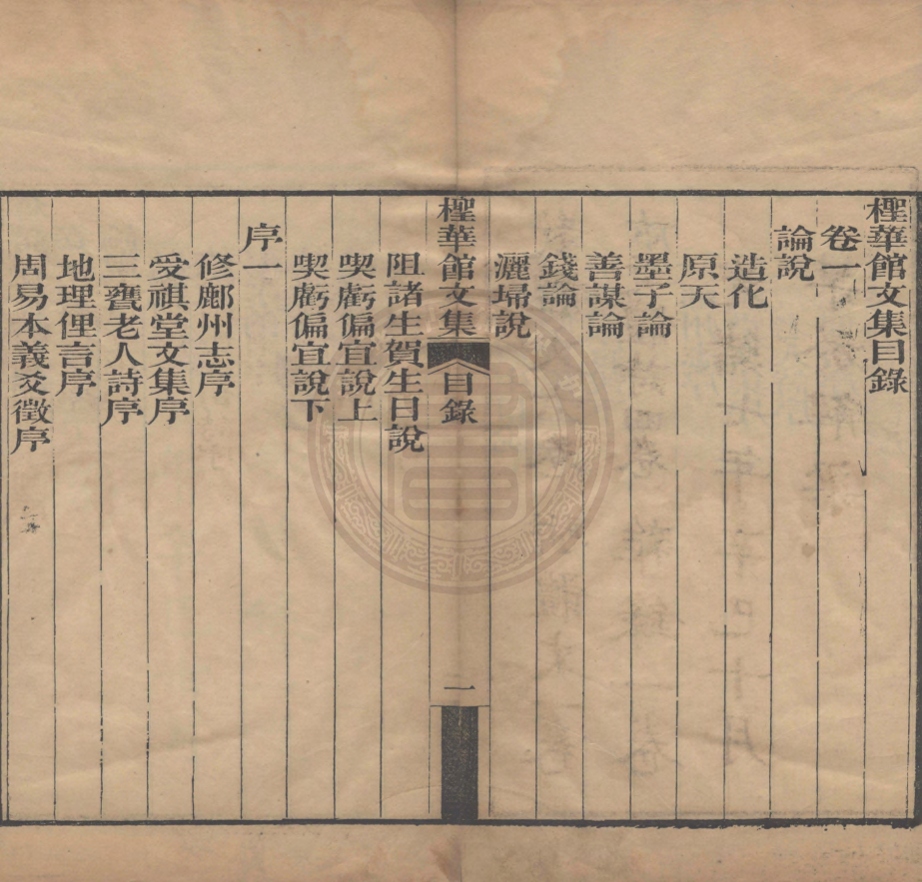 檉華館文集目錄
卷一
論說
造化
原天
墨子論
善謀論
錢論
灑埽說
檉華館文集
目錄
一
阻諸生賀生日說
喫虧偏宜說上
喫虧偏宜說下
序一
修鄜州志序
受祺堂文集序
三聾老人詩序
地理俚言序
周易本義爻徵序